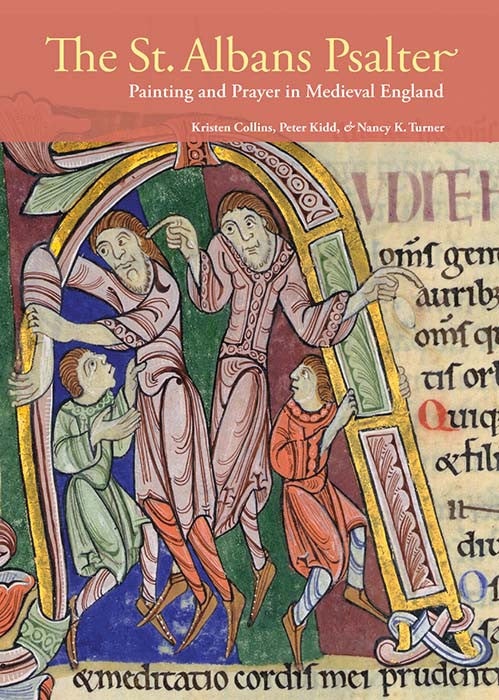 The St. Albans Psalter
Painting and Prayer in Medieval England
Kristen Collins, Peter Kidd, & Nancy K. Turner
UDITE H
oms̄ gen
aurib
oms̄ qu
tis orb
Quiq
& fili
diu
O
& meditatio cordis mei prudent